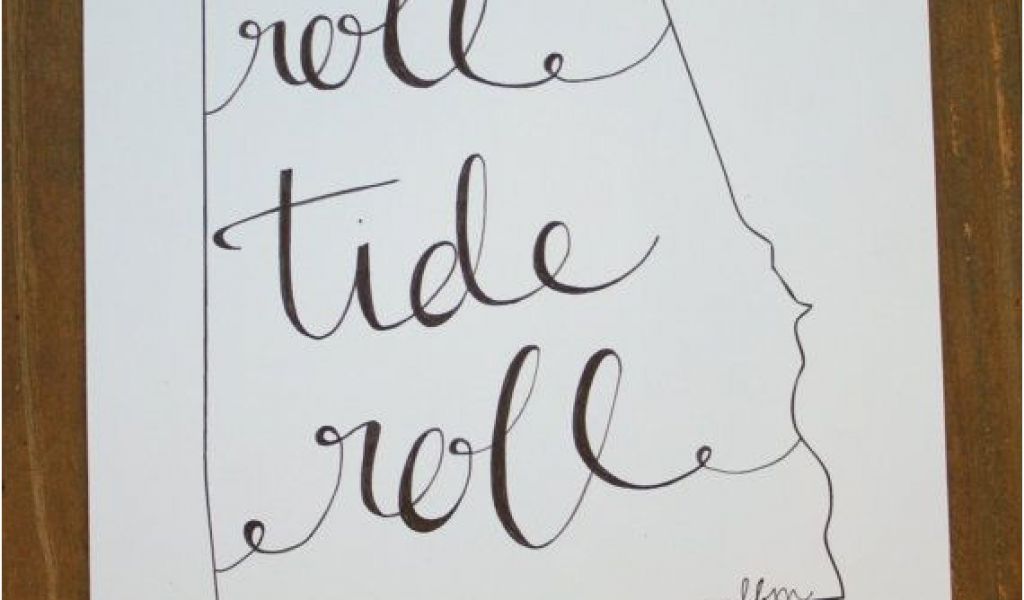 roll
tide
roll